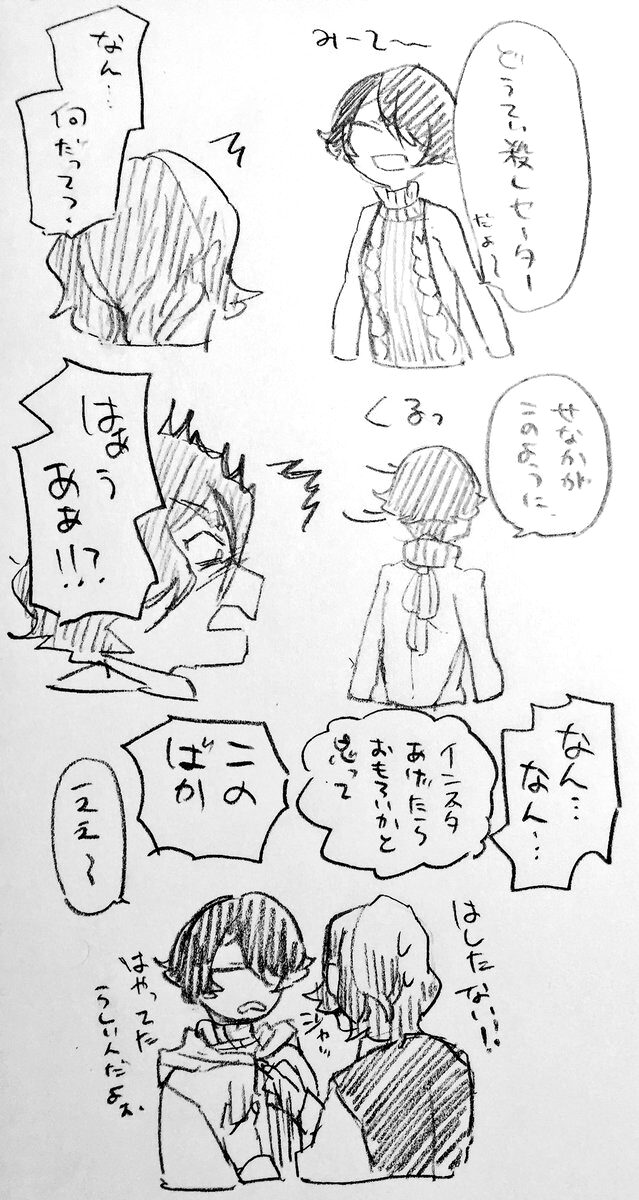 みーてー
どうてい殺しセーター
だよ〜
なん…
何だって?
せなかが
このように
くるっ
はぁぅ
あぁ!!?
なん…
なん…
インスタ
あげたら
おもろいかと
思って
この
ばか
ええ〜
はしたない!!
シャッ
はやってた
らしいんだよぉ